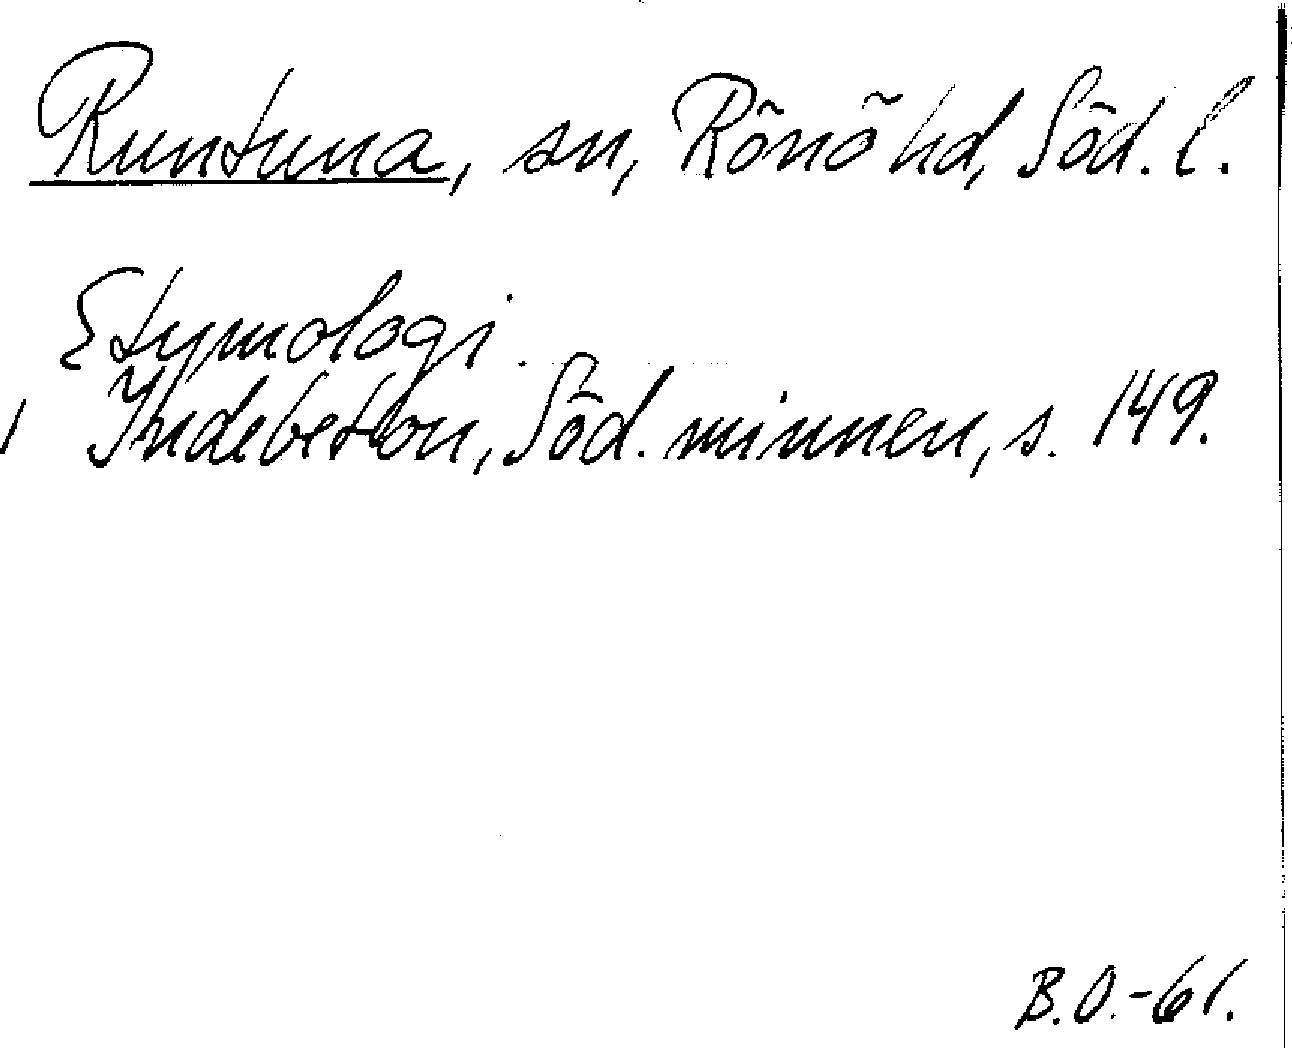 Runtuna, sn, Rönö hd, Söd. l.
Etymologi.
Indebetou, Söd. minnen, s. 149.
B.O.-61.